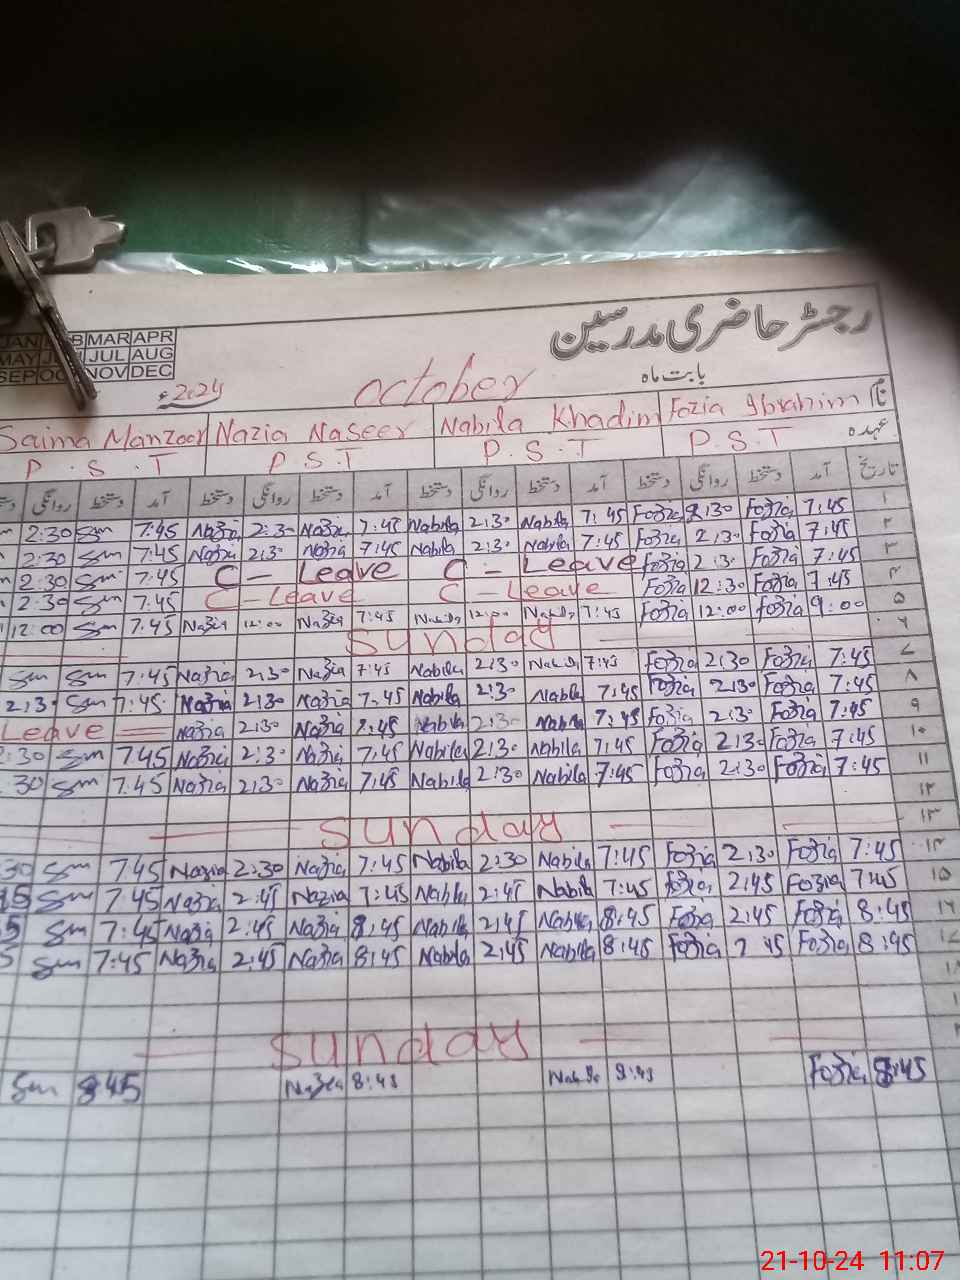 رجسٹر حاضری مدرسین
JAN MAR APR
MAY JUL AUG
SEP NOV DEC
بابت ماہ October 2024ء
نام Fozia Ibrahim Nabila Khadim Nazia Naseer Saima Manzoor
عہدہ P.S.T P.S.T P.S.T P.S.T
تاریخ آمد دستخط روانگی دستخط آمد دستخط روانگی دستخط آمد دستخط روانگی دستخط آمد دستخط روانگی
۱ 7:45 Fozia 2:30 Fozia 7:45 Nabila 2:30 Nabila 7:45 Nazia 2:30 Nazia 7:45 Sm 2:30
۲ 7:45 Fozia 2:30 Fozia 7:45 Nabila 2:30 Nabila 7:45 Nazia 2:30 Nazia 7:45 Sm 2:30
۳ 7:45 Fozia 2:30 Fozia C - Leave C - Leave 7:45 Sm 2:30
۴ 7:45 Fozia 12:30 Fozia C - Leave C - Leave 7:45 Sm 2:30
۵ 9:00 Fozia 12:00 Fozia 7:45 12:00 7:45 Nazia 12:00 Nazia 7:45 Sm 12:00
۶ Sunday
۷ 7:45 Fozia 2:30 Fozia 7:45 2:30 Nabila 7:45 Nazia 2:30 Nazia 7:45 Sm Sm
۸ 7:45 Fozia 2:30 Fozia 7:45 Nabila 2:30 Nabila 7:45 Nazia 2:30 Nazia 7:45 Sm 2:30
۹ 7:45 Fozia 2:30 Fozia 7:45 Nabila 2:30 Nabila Nazia 2:30 Nazia Leave
۱۰ 7:45 Fozia 2:30 Fozia 7:45 Nabila 2:30 Nabila 7:45 Nazia 2:30 Nazia 7:45 Sm :30
۱۱ 7:45 Fozia 2:30 Fozia 7:45 Nabila 2:30 Nabila 7:45 Nazia 2:30 Nazia 7:45 Sm 30
۱۲
۱۳ Sunday
7:45 Fozia 2:30 Fozia 7:45 Nabila 2:30 Nabila 7:45 Nazia 2:30 Nazia 7:45 Sm 30
۱۵ 7:45 Fozia 2:45 Fozia 7:45 Nabila 2:45 Nabila 7:45 Nazia 2:45 Nazia 7:45 Sm 45
۱۶ 8:45 Fozia 2:45 Fozia 8:45 Nabila 2:45 Nabila 8:45 Nazia 2:45 Nazia 7:45 Sm 5
۱۷ 8:45 Fozia 2 45 Fozia 8:45 Nabila 2:45 Nabila 8:45 Nazia 2:45 Nazia 7:45 Sm 5
۱۸
Sunday
8:45 Fozia 8:45 Nazia 845 Sm
21-10-24 11:07